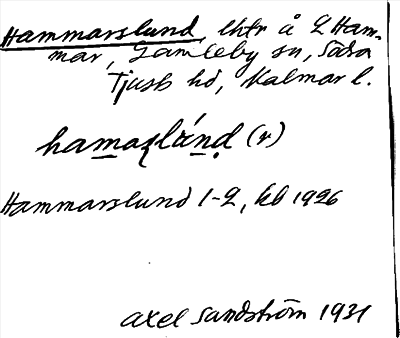 Hammarslund, lhtr å L Ham-
mar, Gamleby sn, Södra
Tjust hd, Kalmar l.
hamaʂlánd (r)
Hammarslund 1-2, kb 1926
Axel Sandström 1931